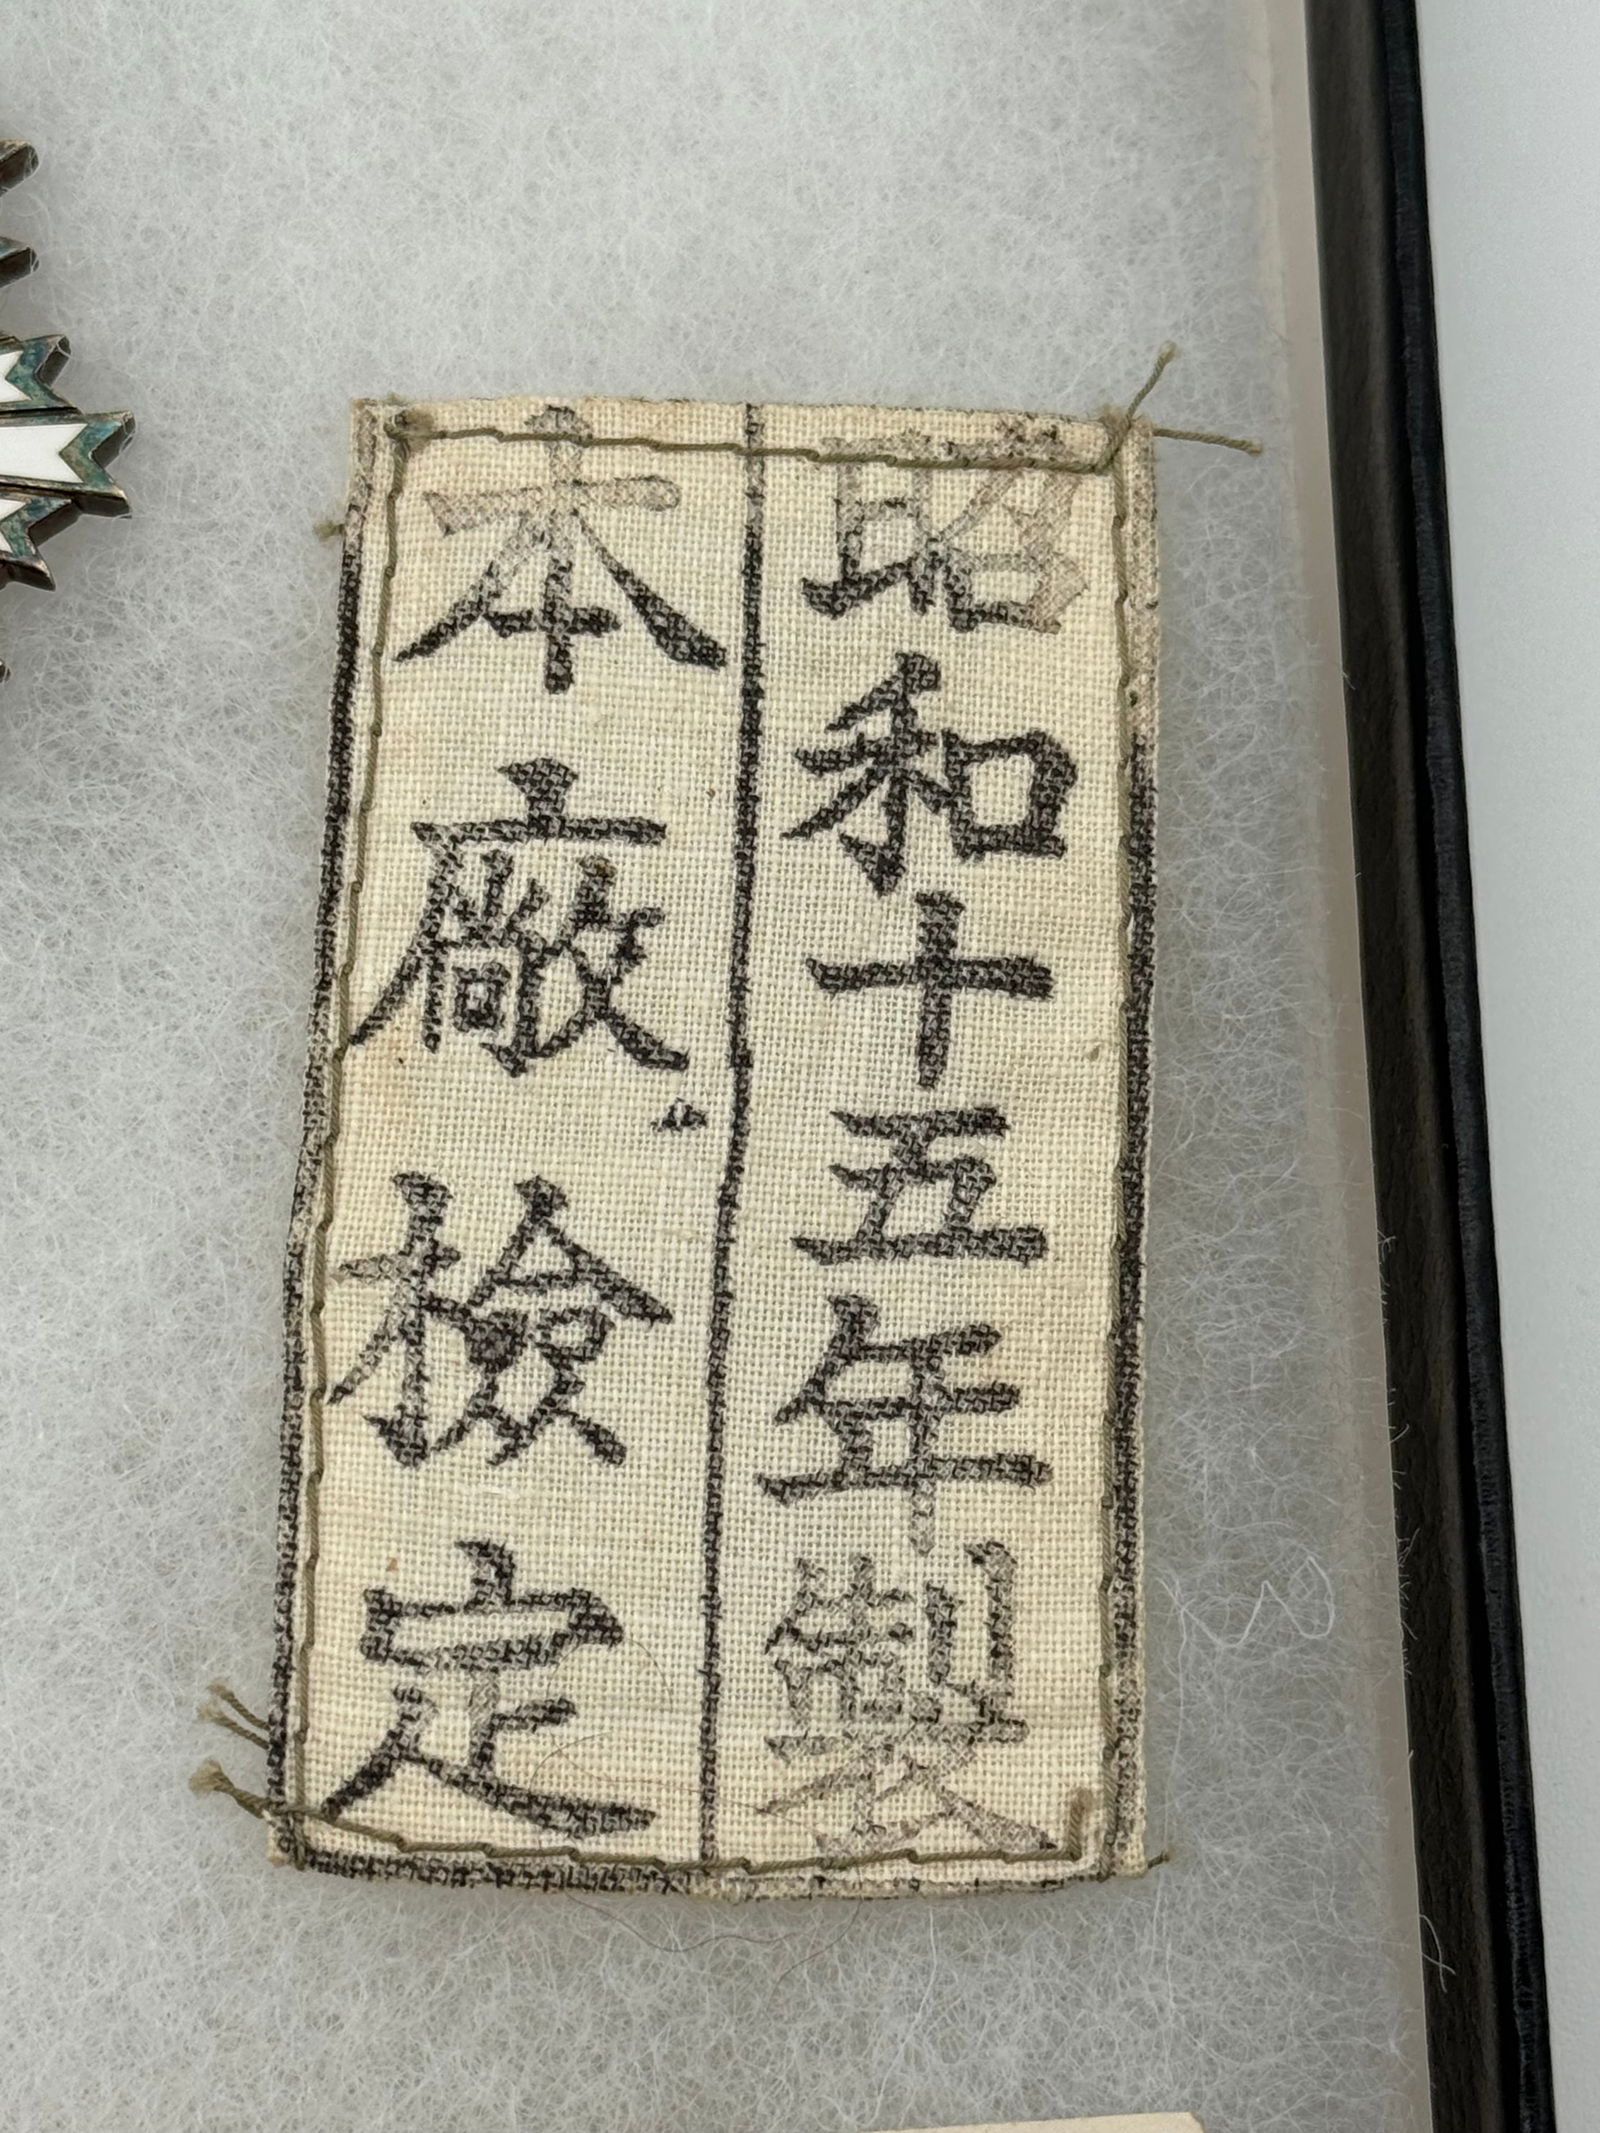 昭和十五年製
本廠檢定